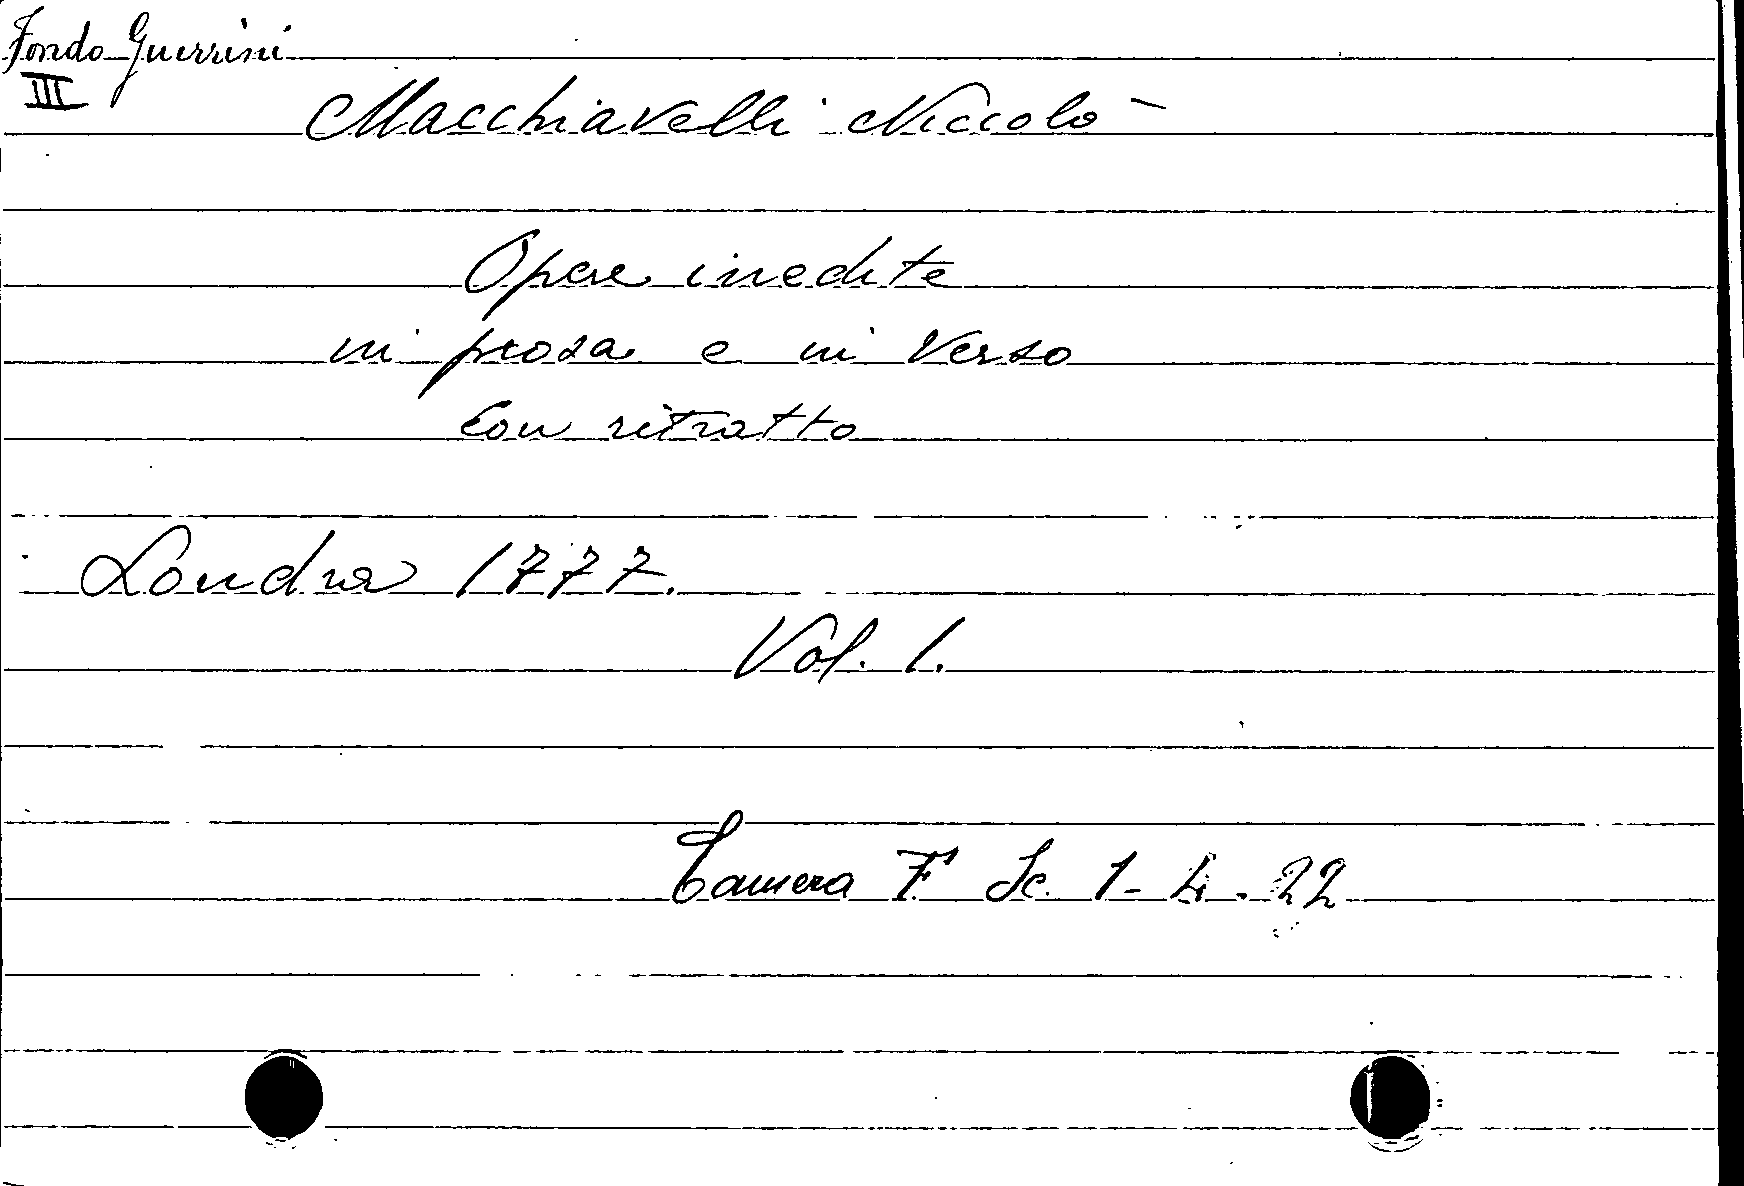 Fondo Guerrini
III
Macchiavelli Niccolò -
Opere inedite
in prosa e in verso
con ritratto
Londra 1777.
Vol. 1.
Camera F Sc. 1-4.22